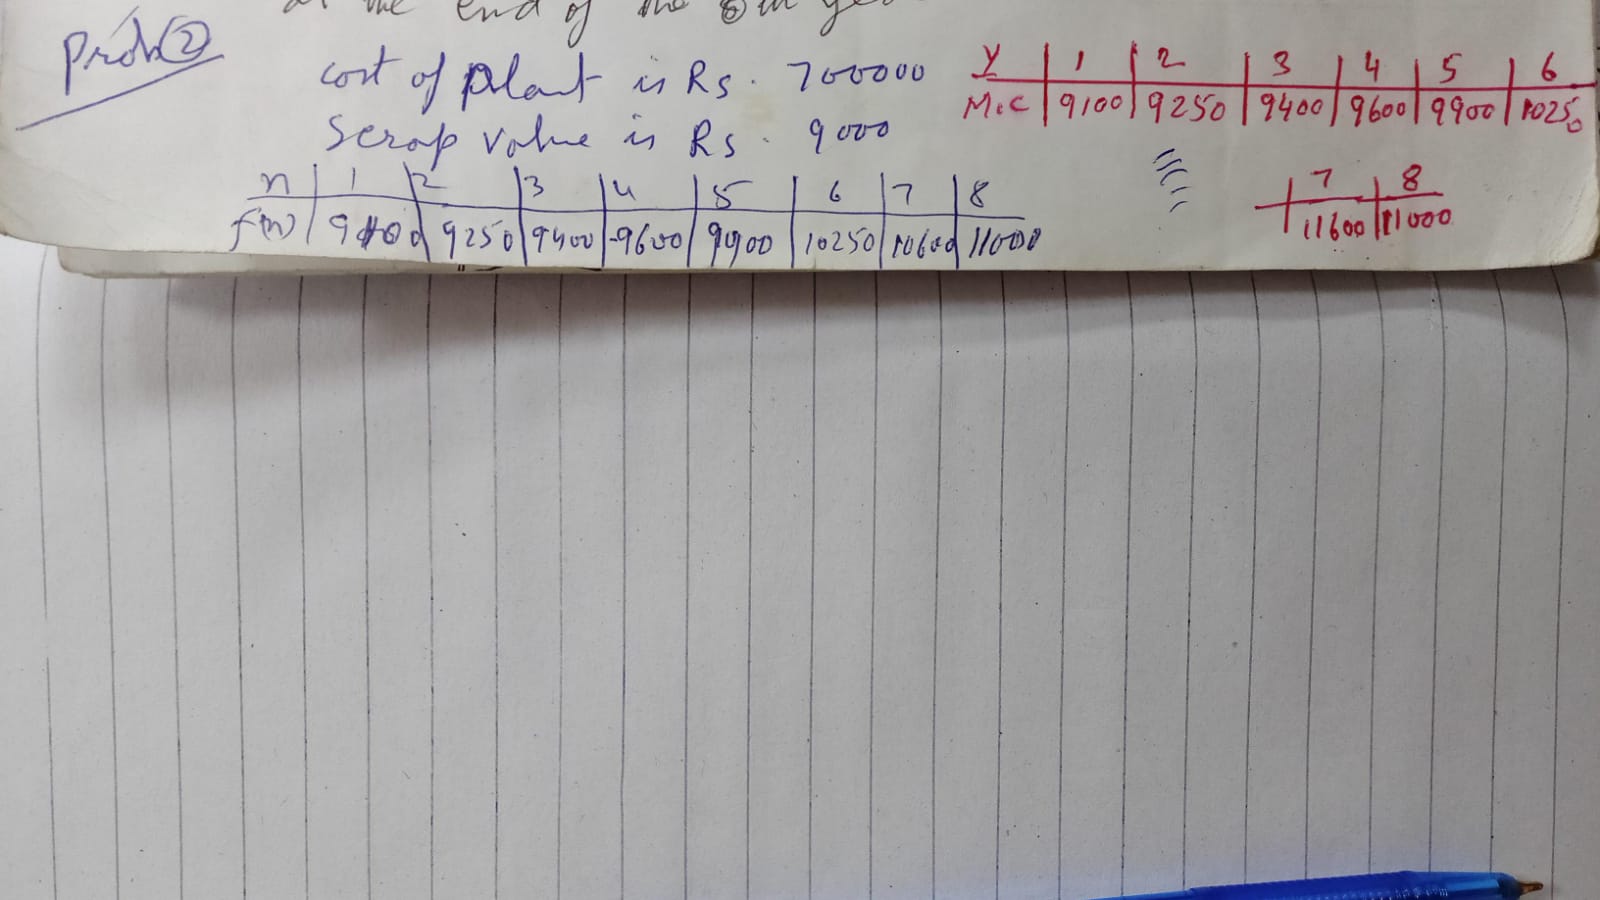 at the end of the 8th year
Prob ②
cost of plant is Rs. 700000
Scrap value is Rs. 9000
n | 1 | 2 | 3 | 4 | 5 | 6 | 7 | 8
f(n) | 9100 | 9250 | 9400 | 9600 | 9900 | 10250 | 10600 | 11000
Y | 1 | 2 | 3 | 4 | 5 | 6
M.C | 9100 | 9250 | 9400 | 9600 | 9900 | 10250
7 | 8
11600 | 11000